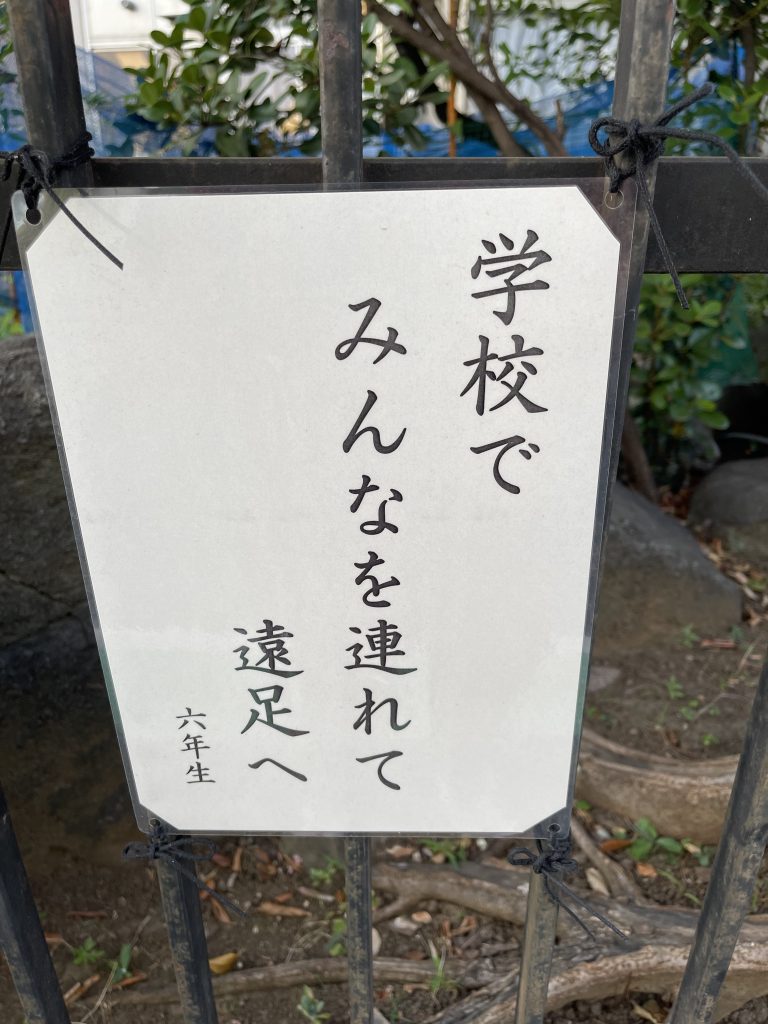 学校で
みんなを連れて
遠足へ
六年生